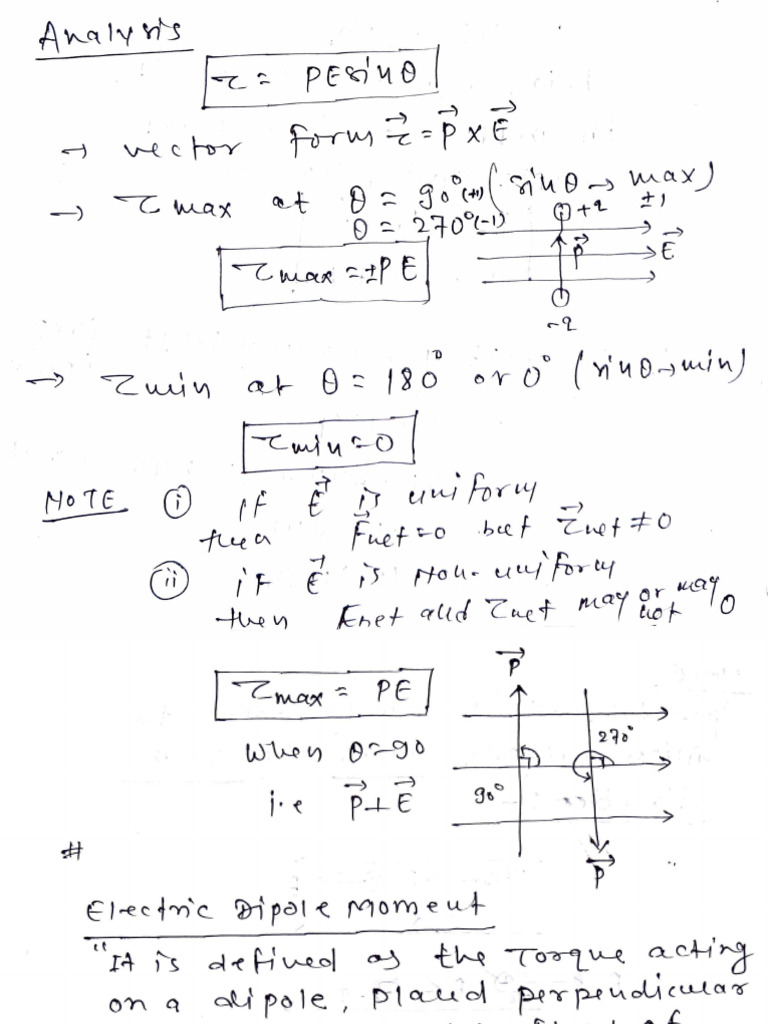 Analysis
τ = PEsinθ
→ vector form τ⃗ = P⃗ × E⃗
→ τmax at θ = 90°(+1) (sinθ → max)
θ = 270°(-1) ±1
τmax = ±PE
+q
P⃗
E⃗
-q
→ τmin at θ = 180° or 0° (sinθ → min)
τmin = 0
NOTE (i) if E⃗ is uniform
then F⃗net = 0 but τ⃗net ≠ 0
(ii) if E⃗ is Non-uniform
then Fnet and τnet may or may not 0
P⃗
τmax = PE
when θ = 90
270°
i.e P⃗ ⊥ E⃗
90°
P⃗
#
Electric Dipole Moment
"It is defined as the Torque acting
on a dipole, placed perpendicular